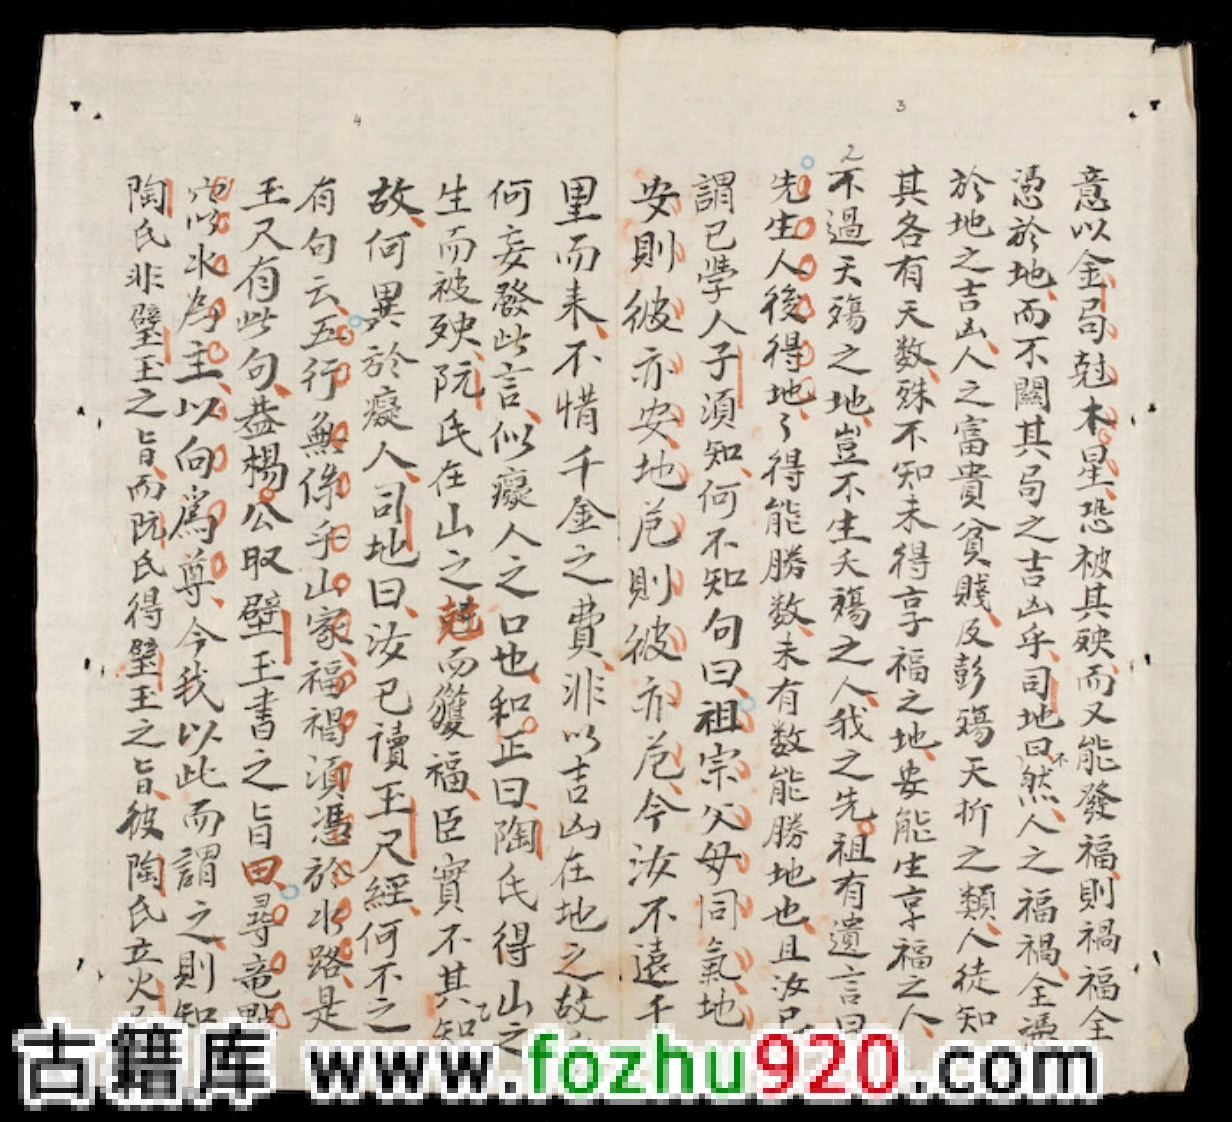 3
意以金局尅木星恐被其殃而又能發福則禍福全
憑於地而不關其局之吉凶乎司地曰不然人之福禍全憑
於地之吉凶人之富貴貧賤反彭殤夭折之類人徒知
其各有天数殊不知未得享福之地安能生享福之人
不過夭殤之地豈不生夭殤之人我之先祖有遺言曰
先生人後得地〻得能勝数未有数能勝地也且汝已
謂已學人子須知何不知句曰祖宗父母同氣地
安則彼亦安地危則彼亦危今汝不遠千
里而来不惜千金之費非以吉凶在地之故
4
何妄發此言似癡人之口也和正曰陶氏得山之
生而被殃阮氏在山之尅而獲福臣實不其知
故何異於癡人司地曰汝已讀玉尺經何不之
有句云五行無係乎山家福禍須憑於水路是
玉尺有此句葢楊公取壁玉書之旨曰尋竜
穴以水為主以向爲尊今我以此而謂之則知
陶氏非璧玉之旨而阮氏得璧玉之旨彼陶氏立火
古籍库 www.fozhu920.com